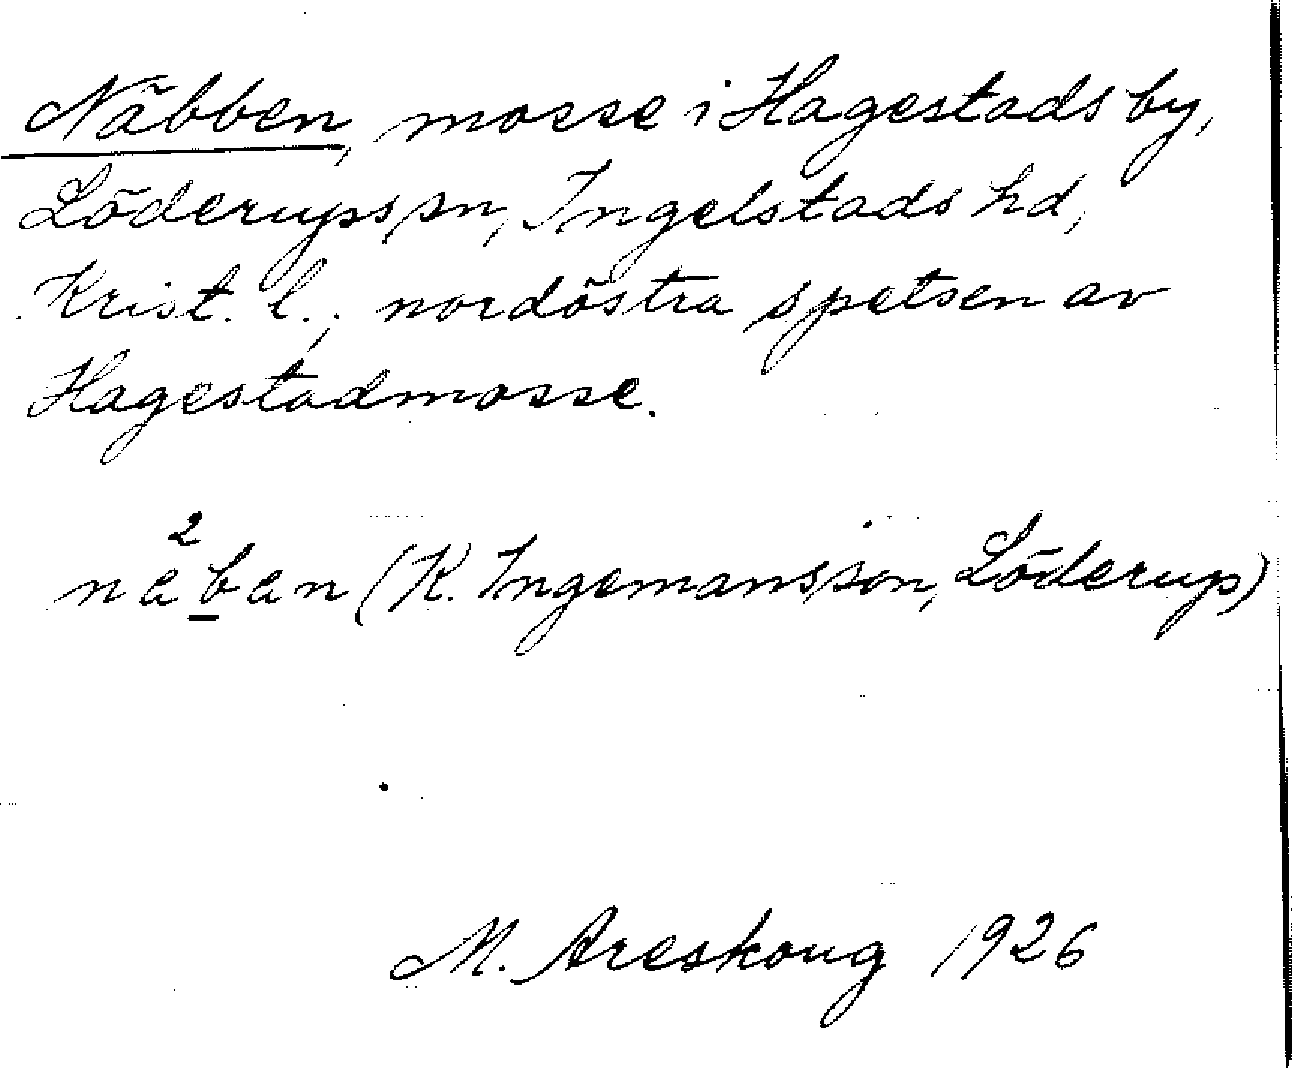 Näbben, mosse i Hagestads by,
Löderups sn, Ingelstads hd,
Krist. l.; nordöstra spetsen av
Hagestadmosse.
næ²b̲æn (K. Ingemansson, Löderup)
M. Areskoug 1926